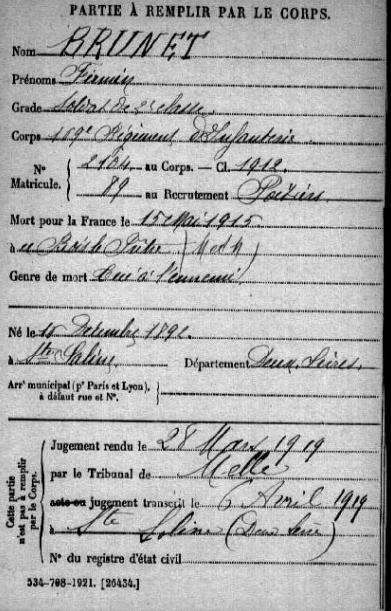 PARTIE À REMPLIR PAR LE CORPS.
Nom BRUNET
Prénoms Firmin
Grade Soldat de 2e classe
Corps 109e Régiment d'Infanterie
N° Matricule. 2164 au Corps. — Cl. 1912.
89 au Recrutement Poitiers
Mort pour la France le 15 Mai 1915
à Bois le Prêtre (M et M)
Genre de mort tué à l'ennemi
Né le Décembre 1892
à Ste Soline Département Deux-Sèvres.
Arrt municipal (pr Paris et Lyon), à défaut rue et N°.
Cette partie n'est pas à remplir par le Corps.
Jugement rendu le 28 Mars 1919
par le Tribunal de Melle
acte ou jugement transcrit le 6 Avril 1919
à Ste Soline (Deux Sèvres)
N° du registre d'état civil
534-708-1921. [26434.]